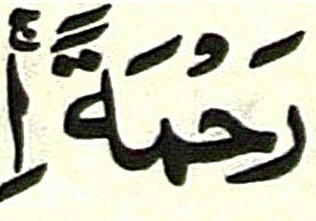 رَحْمَةً ۚ اِ